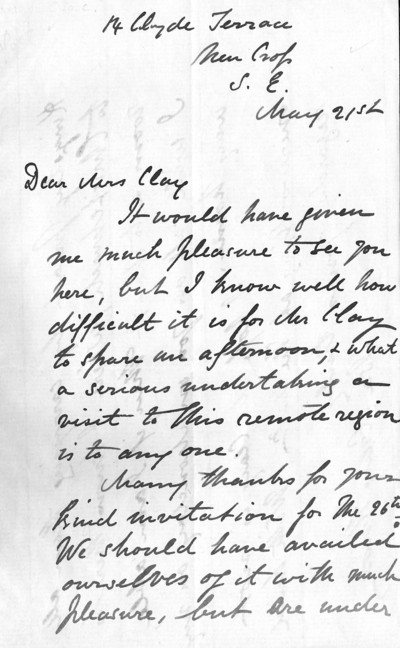 14 Clyde Terrace
New Cross
S. E.
May 21st
Dear Mrs Clay
It would have given
me much pleasure to see you
here, but I know well how
difficult it is for Mr Clay
to spare an afternoon, & what
a serious undertaking a
visit to this remote region
is to any one.
Many thanks for your
kind invitation for the 26th
We should have availed
ourselves of it with much
pleasure, but are under